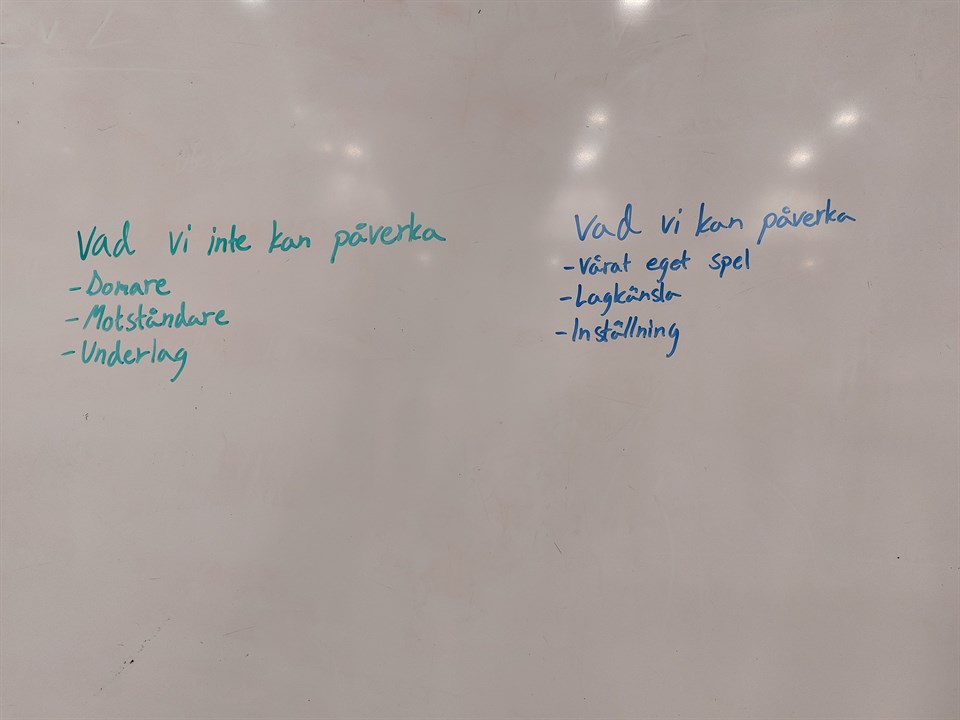 Vad vi inte kan påverka
-Domare
-Motståndare
-Underlag
Vad vi kan påverka
-Vårat eget spel
-Lagkänsla
-Inställning